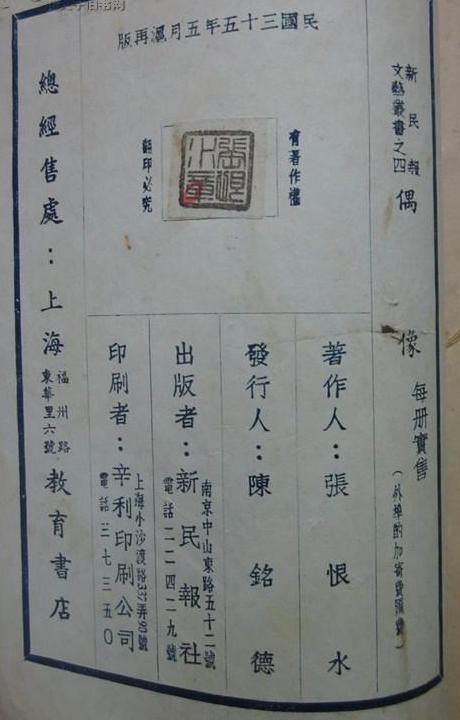 子旧书网
民國三十五年五月滬再版
新民報
文藝叢書之四
偶像
每册實售
（外埠酌加寄費匯費）
有著作權
張恨水章
翻印必究
著作人：張恨水
發行人：陳銘德
出版者：新民報社
南京中山東路五十二號
電話二二四二九號
印刷者：辛利印刷公司
上海小沙渡路337弄90號
電話三七三五〇
總經售處：上海
福州路
東華里六號
教育書店